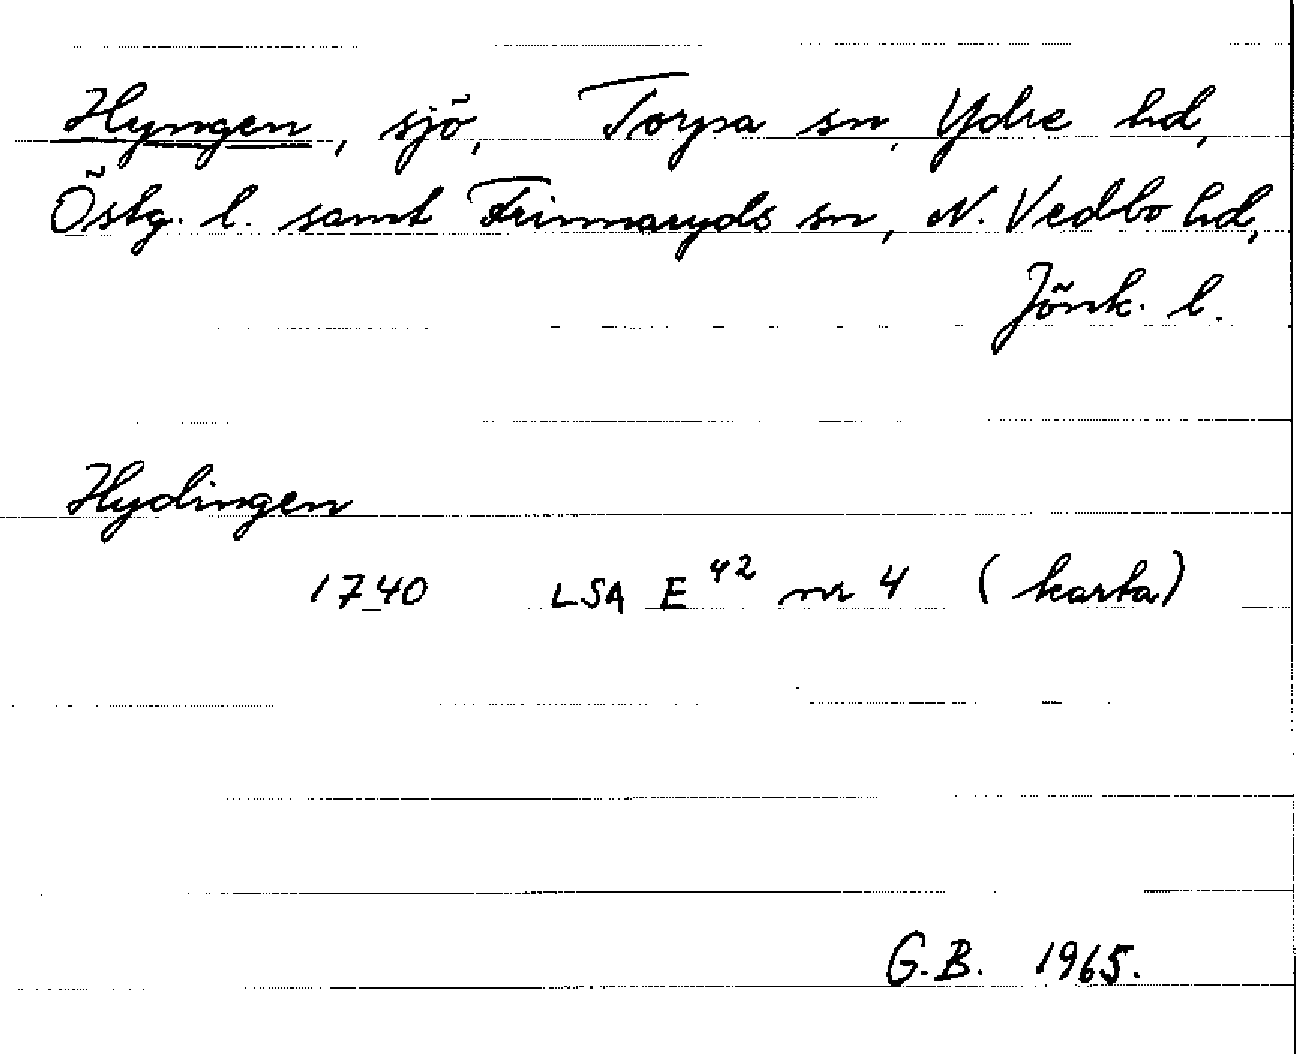 Hyngen, sjö, Torpa sn, Ydre hd,
Östg. l. samt Frinnaryds sn, N. Vedbo hd,
Jönk. l.
Hydingen
1740 LSA E 42 nr 4 (karta)
G.B. 1965.